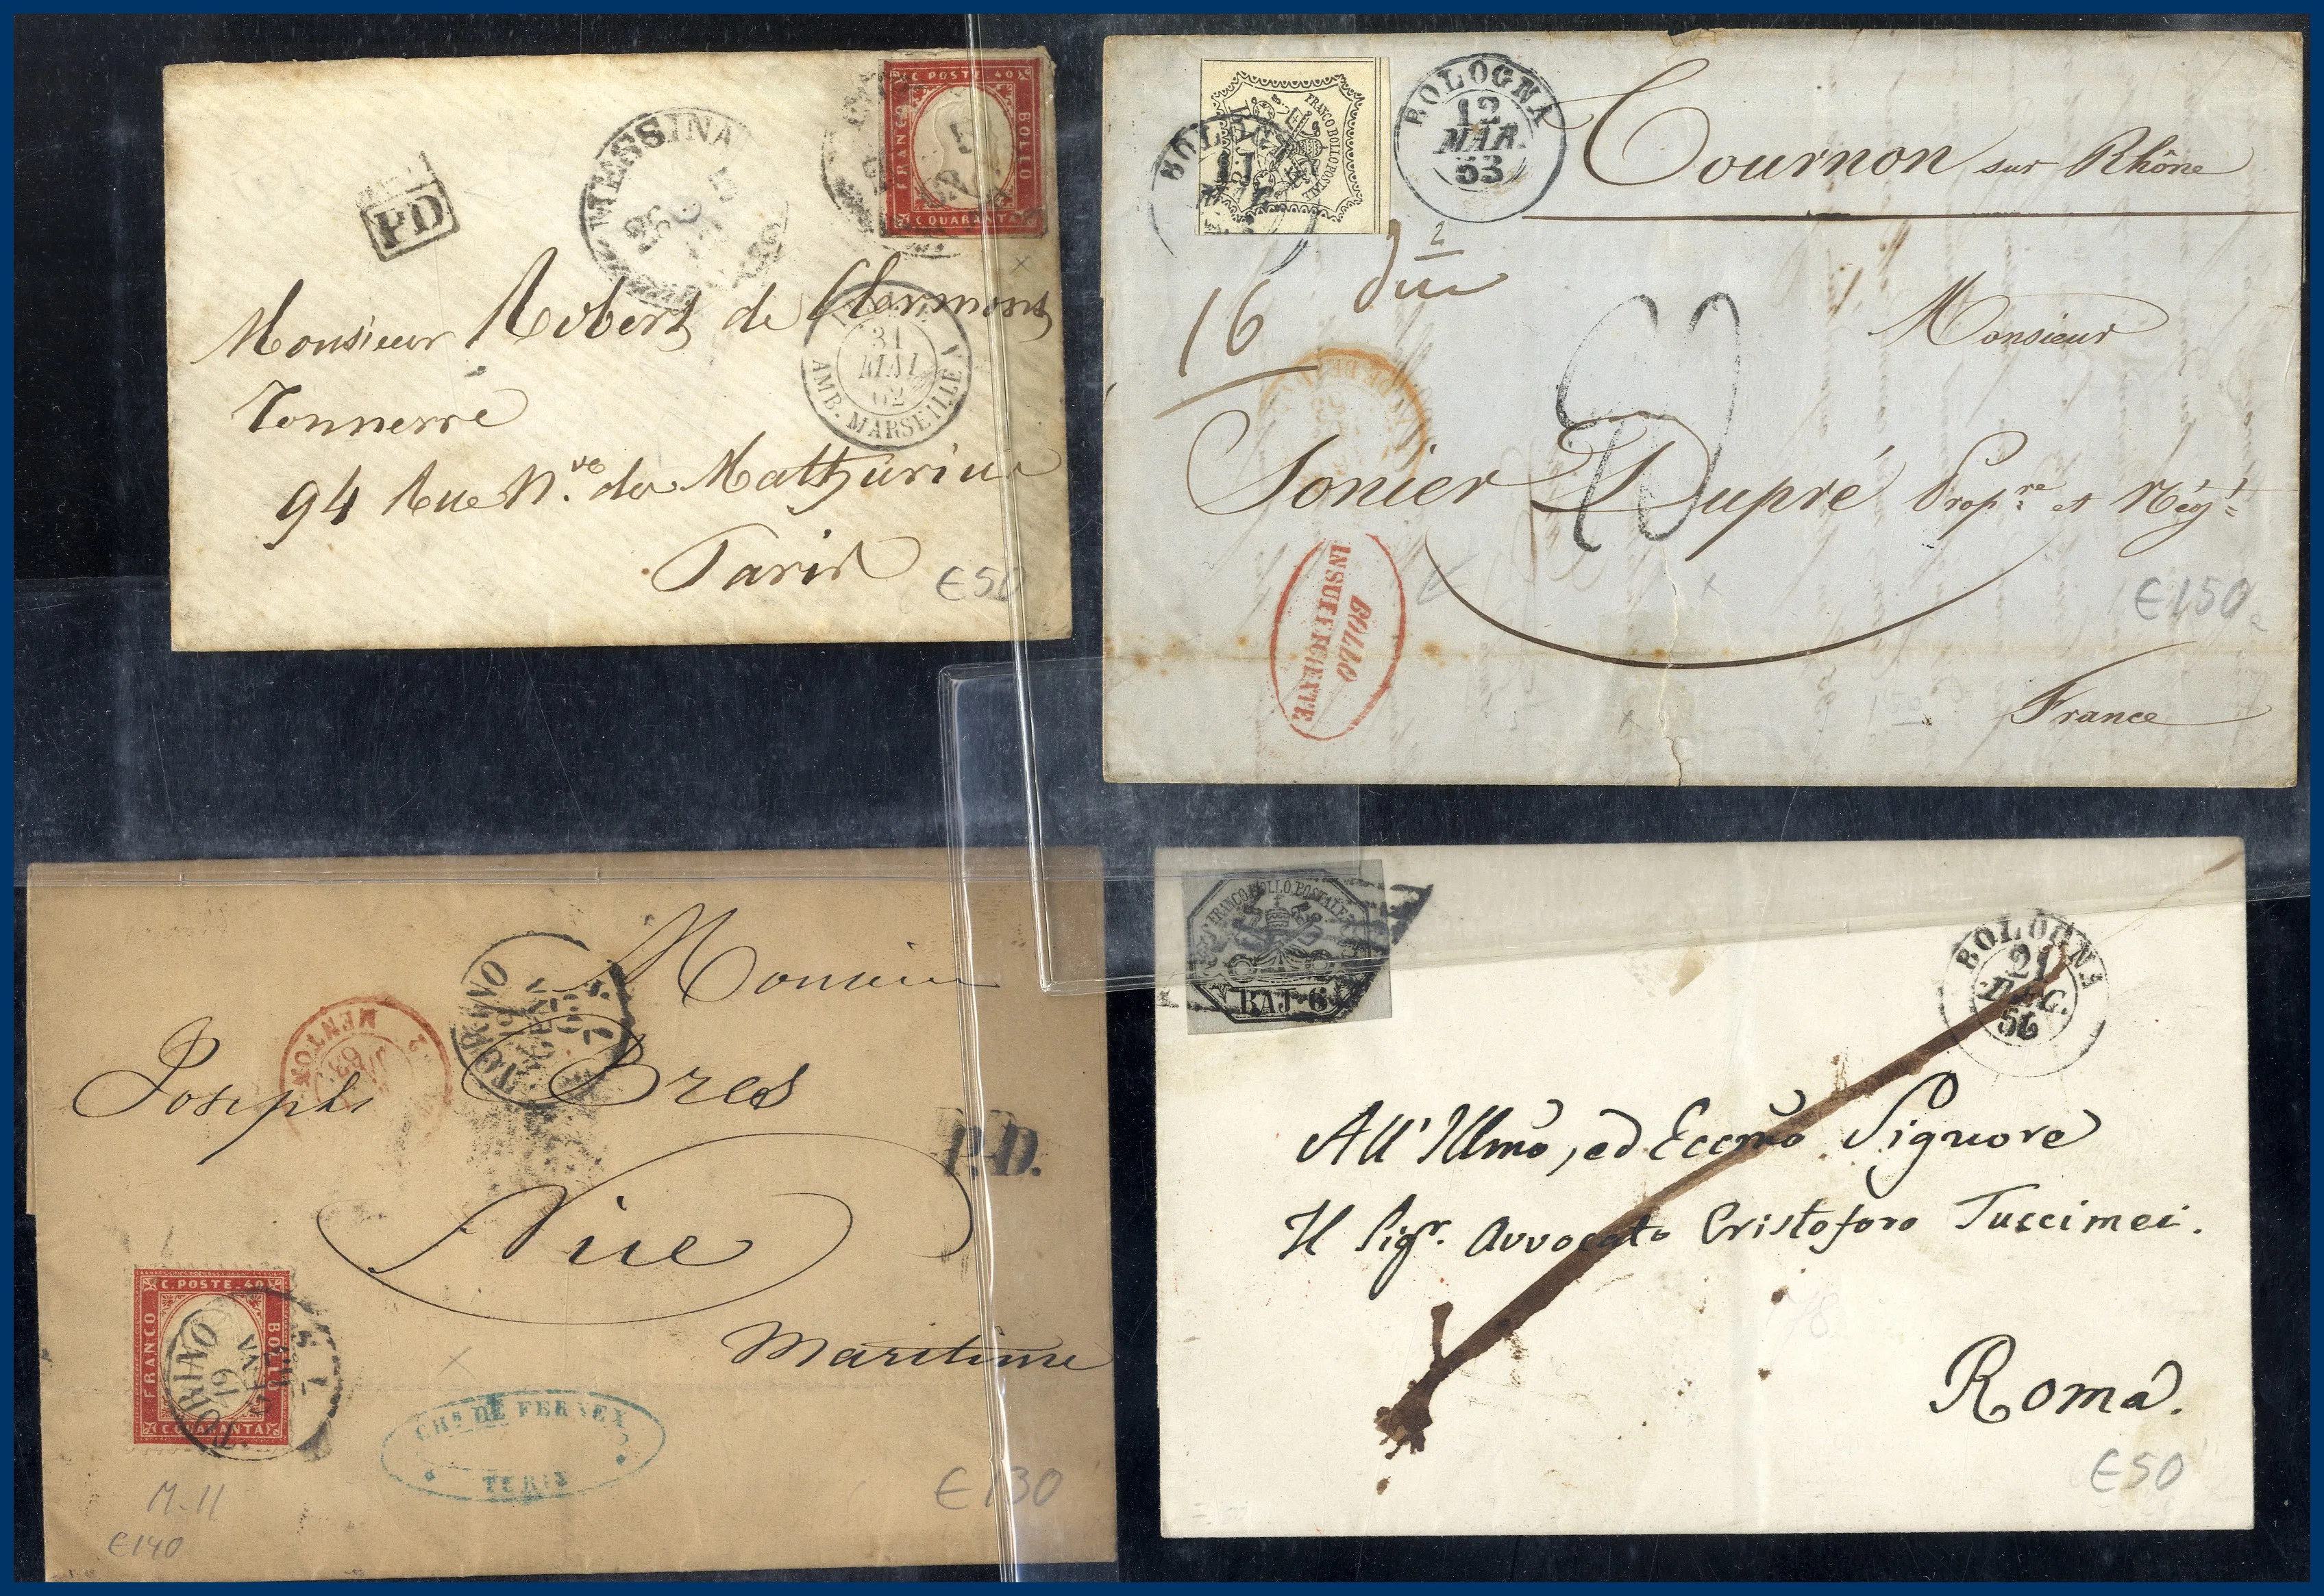 C. POSTE. 40
FRANCO
BOLLO
C. QUARANTA
MESSINA
PD
Monsieur Robert de Clermont
Tonnerre
31
MAI
62
AMB. MARSEILLE
94 Rue N.ve des Mathurins
Paris
€50
FRANCO BOLLO POSTALE
BOLOGNA
12
MAR.
53
Tournon sur Rhône
2
16
Monsieur
Sonier Dupré Prop.re et Nég.t
BOLLO
INSUFFICIENTE
€150
France
Monsieur
TORINO
19
GEN
63
MENTON
63
Joseph Bres
P.D.
Nice
Maritime
C. POSTE. 40
FRANCO
BOLLO
C. QUARANTA
TORINO
19
CHs DE FERNEX
TURIN
M-11
€140
€130
FRANCO BOLLO POSTALE
BAJ. 6
BOLOGNA
21
DEC.
56
All' Illmo, ed Eccmo Signore
Il Sigr. Avvocato Cristoforo Tuccimei.
Roma.
€50